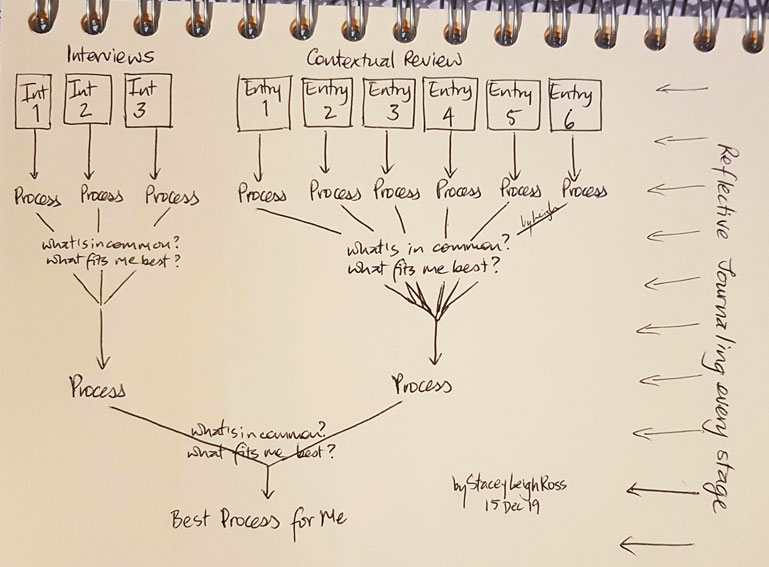 Interviews
Contextual Review
Int 1
Int 2
Int 3
Entry 1
Entry 2
Entry 3
Entry 4
Entry 5
Entry 6
Process Process Process
Process Process Process Process Process Process
what's in common?
what fits me best?
what's in common?
what fits me best?
Process
Process
what's in common?
what fits me best?
Best Process for Me
by StaceyLeighRoss
15 Dec 19
Reflective Journaling every stage